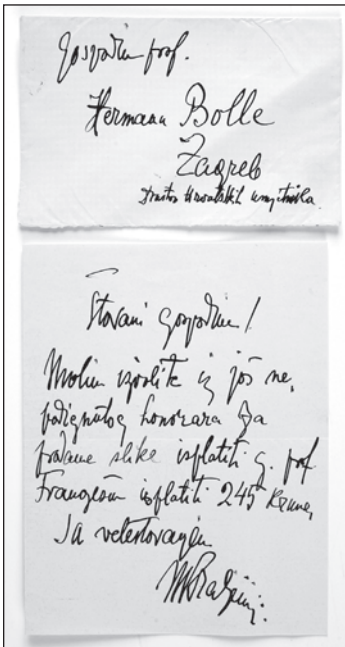 Gospodin prof.
Hermann Bolle
Zagreb
Društvo Hrvatskih umjetnika.
Štovani gospodine!
Molim izvolite iz još ne,
podignutog honorara za
prodane slike isplatiti g. prof.
Frangešu isplatiti 245 Kruna,
Sa veleštovanjem